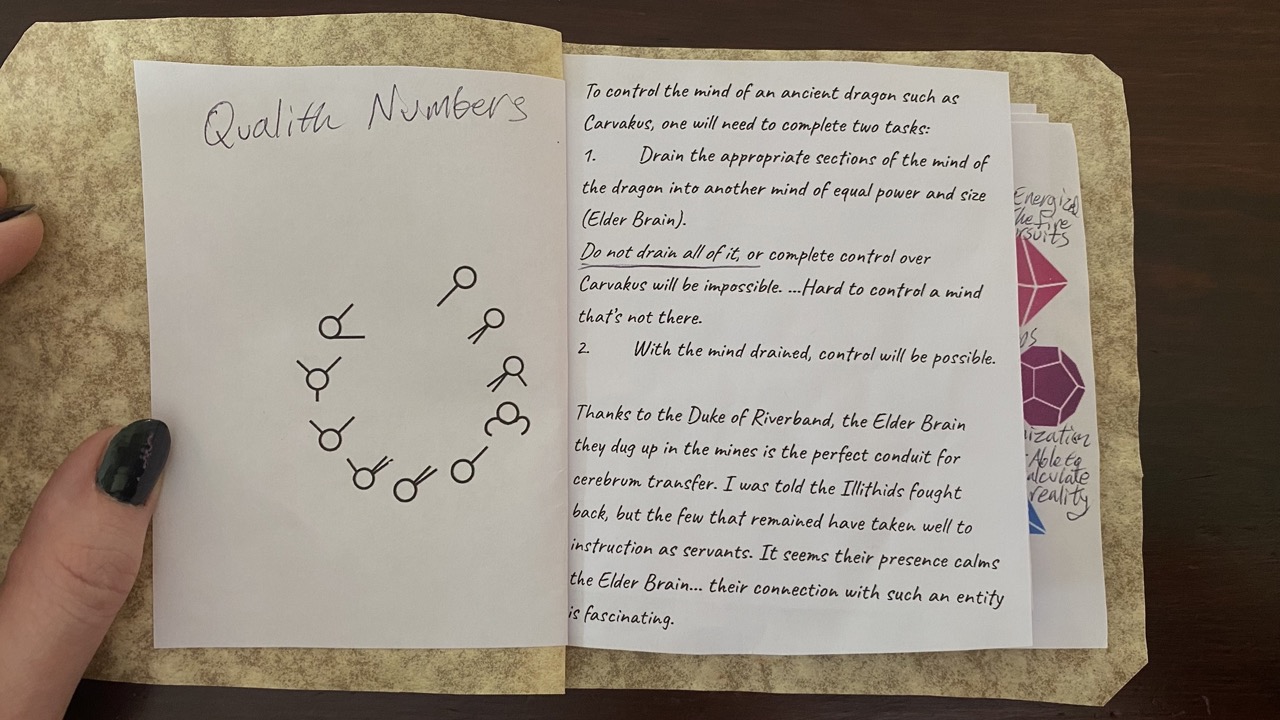 Qualith Numbers
To control the mind of an ancient dragon such as
Carvakus, one will need to complete two tasks:
1. Drain the appropriate sections of the mind of
the dragon into another mind of equal power and size
(Elder Brain).
Do not drain all of it, or complete control over
Carvakus will be impossible. ...Hard to control a mind
that's not there.
2. With the mind drained, control will be possible.
Thanks to the Duke of Riverband, the Elder Brain
they dug up in the mines is the perfect conduit for
cerebrum transfer. I was told the Illithids fought
back, but the few that remained have taken well to
instruction as servants. It seems their presence calms
the Elder Brain... their connection with such an entity
is fascinating.
Able to
reality